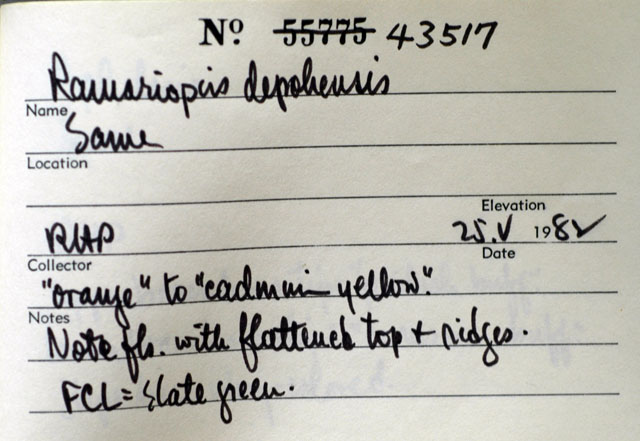 Nº 55775 43517
Ramariopsis depokensis
Name
Same
Location
Elevation
RHP 25.V 1982
Collector Date
"orange" to "cadmium yellow".
Notes
Note fls. with flattened top + ridges.
FCL = slate green.